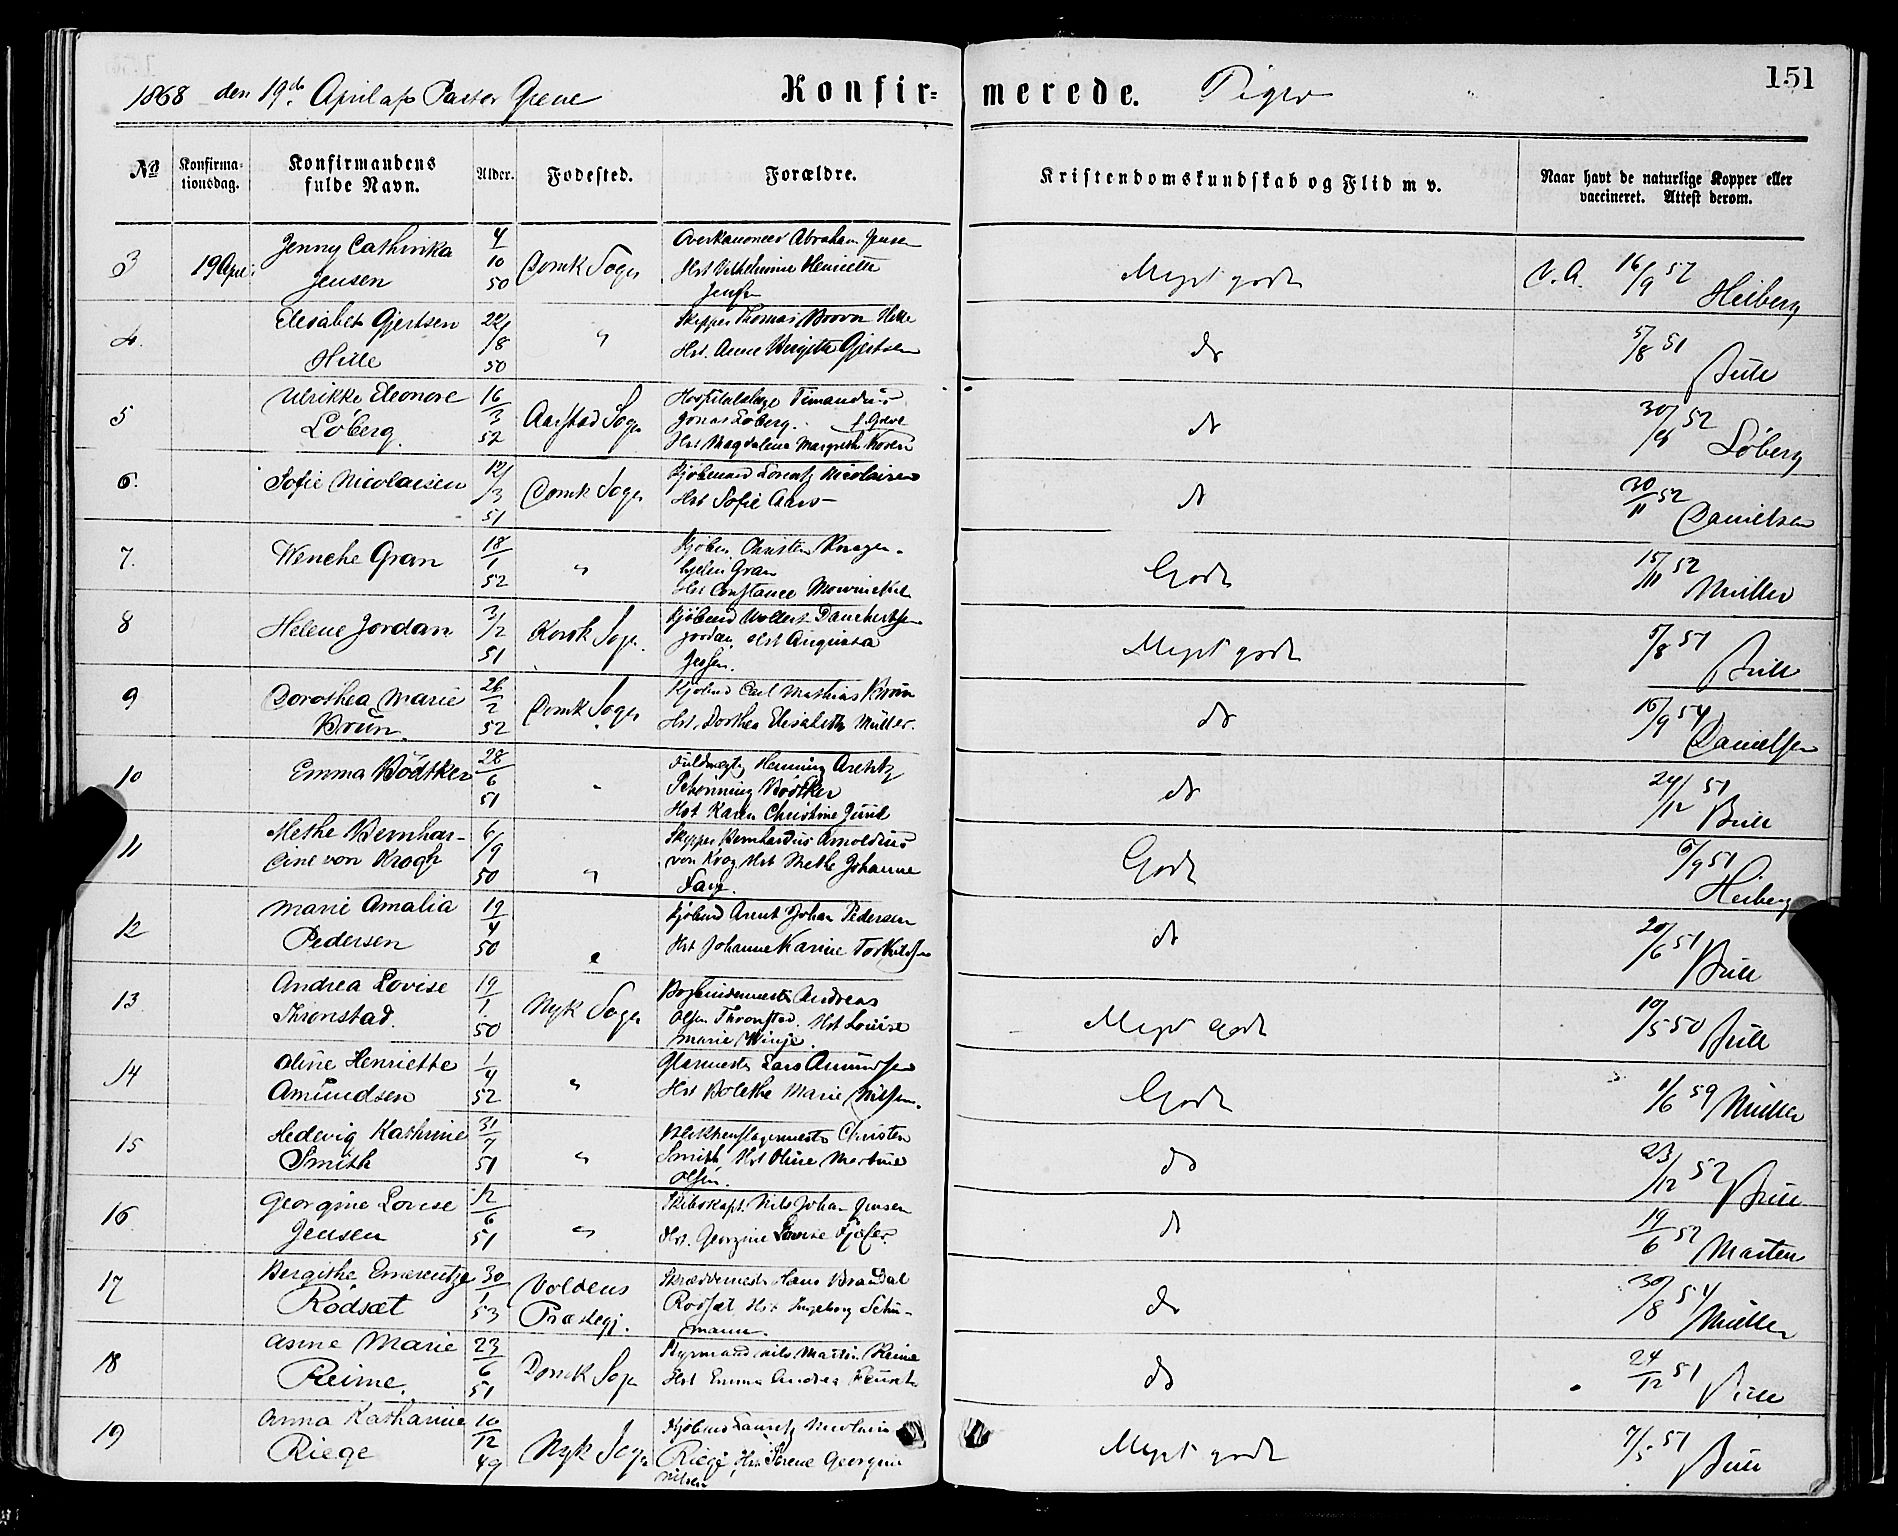 151
1868 den 19de April af Pastor Greve Konfir= merede. Piger
No Konfirma= tionsdag. Konfirmandens fulde Navn. Alder. Fødested. Forældre. Kristendomskundskab og Flid m v. Naar havt de naturlige Kopper eller vaccineret. Attest derom.
3 19 Apr. Jenny Cathinka 4/10 50 Domk Sogn Overkanoneer Abraham Jensen Meget godt V. A. 16/9 52 Heiberg
Jensen Hst Vilhelmine Henriette
Jensen
4. Elisabet Gjertsen 22/8 50 " Skipper Thomas Brown Hille do 5/8 51 Bull
Hille Hst. Anne Bergitte Gjertsen
5 Ulrikke Eleonore 16/3 52 Aarstad Sogn Hospitalslæge Timandus do 30/9 52 Løberg
Løberg. Jonas Løberg.
Hst Magdalena Margrethe Koren
6. Sofie Nicolaisen 12/3 51 Domk Sogn Kjøbmand Lorentz Nicolaisen do 30/11 52 Danielsen
Hst Sofie Aars
7. Wenche Gran 18/1 52 " Kjøbm. Christen Knagen- Godt 15/11 52 Müller
hjelm Gran
Hst Constance Mowinckel
8 Helene Jordan 3/2 51 Korsk Sogn. Kjøbmd Wollert Danckertsen Meget godt 5/8 51 Bull
Jordan, Hst Augusta
Jessen.
9 Dorothea Marie 26/2 52 Domk Sogn Kjøbmd Carl Mathias Brün do 16/9 54 Danielsen
Brün. Hst. Dorthea Elisabeth Müller.
10 Emma Bödtker 28/6 51 " Fuldmægtig Henning Arentz do 24/12 51 Bull
Schönning Bödtker
Hst Karen Christine Juul
11 Methe Bernhar- 6/9 50 " Skipper Bernhardus Arnoldus Godt 6/9 51 Heiberg
dine von Krogh von Krog Hst Methe Johanne
Faye.
12 Marie Amalia 19/4 50 " Kjøbmd Arent Johan Pedersen do 20/6 51 Bull
Pedersen Hst Johanne Karine Torkildsen
13 Andrea Lovise 19/1 50 Nyk Sogn Bogbindermester Andreas Meget Godt 10/5 50 Bull
Thronstad. Olsen Thronstad. Hst Louise
Marie Winje.
14 Oline Henriette 1/4 52 " Glarmester Lars Amundsen Godt 1/6 59 Müller
Amundsen Hst Bolethe Marie Nilsen.
15 Hedevig Kathrine 31/7 51 " Blikkenslagermester Christen do 23/12 52 Bull
Smith Smith Hst Oline Martine
Olsen.
16 Georgine Lovise 12/6 51 " Skibskapt. Nils Johan Jensen do 19/6 52 Marten
Jensen Hst. Georgine Lovise
17 Bergithe Emerentze 30/1 53 Voldens Skræddermester Hans Brandal do 30/8 54 Müller
Rödsæt Præstegj. Rödsæt Hst Ingeborg Schu-
mann.
18 Anne Marie 23/6 51 Domk Sogn Styrmand Nils Martin Reime do 24/12 51 Bull
Reime. Hst Emma Andrea
19 Anna Katharine 10/12 49 Nyk Sogn Kjøbmd Lauritz Nicolai Meget godt 7/5 51 Bull
Riege Riege Hst Serene Georgine
Nilsen